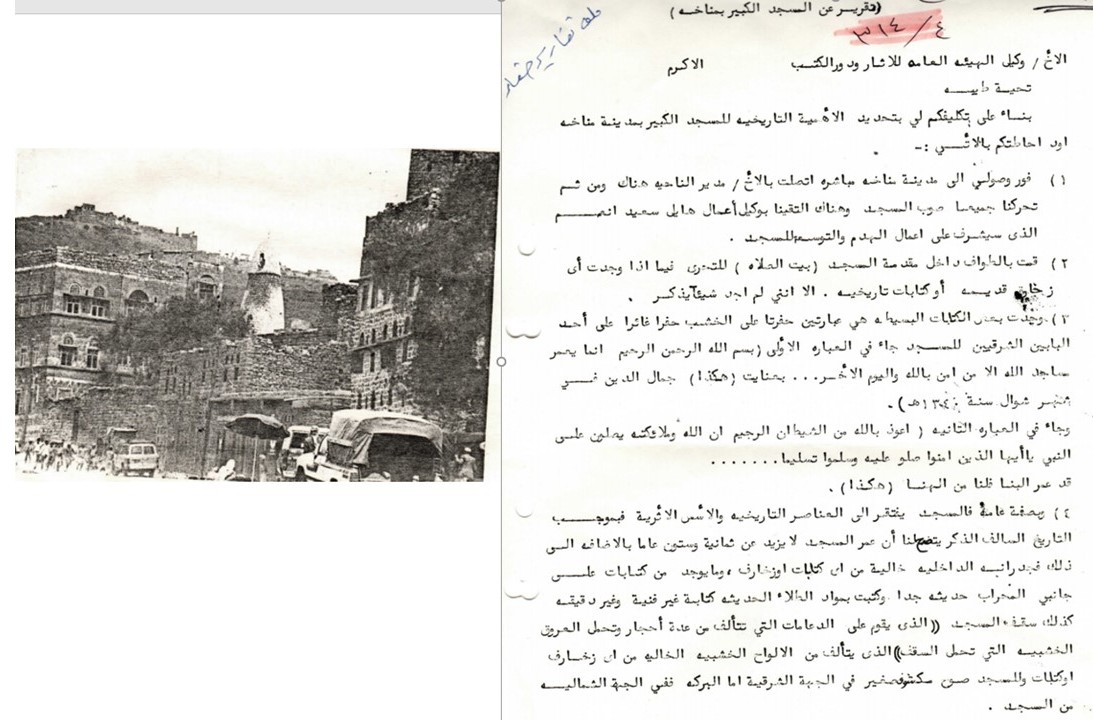 (تقرير عن المسجد الكبير بمناخه)
٣١٤/٤
ملف تقارير
الاخ / وكيل الهيئه العامه للاثار ودور الكتب الاكرم
تحية طيبـــه
بنـاء على تكليفكم لي بتحديد الأهمية التاريخيه للمسجد الكبير بمدينة مناخه
اود احاطتكم بالاتــي :-
١) فور وصولي الى مدينة مناخه مباشره اتصلت بالاخ / مدير الناحيه هناك ومن ثم
تحركنا جميعا صوب المسجد وهناك التقينا بوكيل أعمال هايل سعيد انعــم
الذى سيشرف على اعمال الهدم والتوسعه للمسجد .
٢) قمت بالطواف داخل مقدمة المسجد (بيت الصلاه ) للتحرى فيما اذا وجدت أى
زخارف قديمــه أو كتابات تاريخيه . الا انني لم اجد شيئا يذكـر .
٣) وجدت بعض الكتابات البسيطه هي عبارتين حفرتا على الخشب حفرا غائرا على أحد
البابين الشرقيين للمسجد جاء في العباره الأولى (بسم الله الرحمن الرحيم انما يعمر
مساجد الله الا من امن بالله واليوم الأخــر... بعنايت (هكذا) جمال الدين فــي
شهـر شوال سنة ١٣٤٠هـ) .
وجاء في العباره الثانيه ( اعوذ بالله من الشيطان الرجيم ان الله وملائكته يصلون علــى
النبي ياأيها الذين امنوا صلو عليه وسلموا تسليما.......
قد عمر البنا فلنا من الهنــا (هكذا) .
٤) وبصفة عامة فالمسجد يفتقر الى العناصر التاريخيه والأسس الأثرية فبموجــب
التاريخ السالف الذكر يتضح لنا أن عمر المسجد لا يزيد عن ثمانية وستون عاما بالاضافه الــى
ذلك فجدرانــه الداخليه خالية من اى كتابات اوزخارف ومايوجد من كتابات علــى
جانبي المحراب حديثه جدا وكتبت بمواد الطلاء الحديثه كتابة غير فنية وغير دقيقه
كذلك سقف المسجد ((الذى يقوم على الدعامات التي تتألف من عدة أحجار وتحمل العروق
الخشبيــه التي تحمل السقف)) الذى يتألف من الالواح الخشبيه الخاليه من اى زخــارف
اوكتابات وللمسجد صـوح مكشوف صغير في الجهة الشرقية اما البركه ففي الجهة الشماليــه
من المسجد .